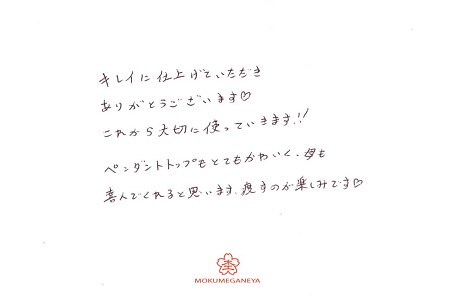 キレイに仕上げていただき
ありがとうございます♡
これから大切に使っていきます!!
ペンダントトップもとてもかわいく、母も
喜んでくれると思います。渡すのが楽しみです♡
MOKUMEGANEYA